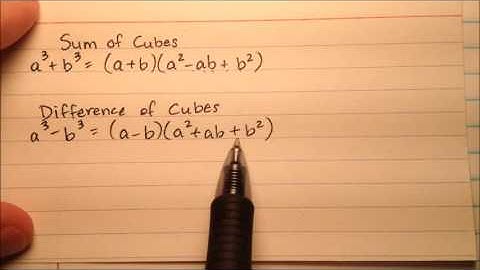 Sum of Cubes
a³ + b³ = (a+b)(a² - ab + b²)
Difference of Cubes
a³ - b³ = (a-b)(a² + ab + b²)